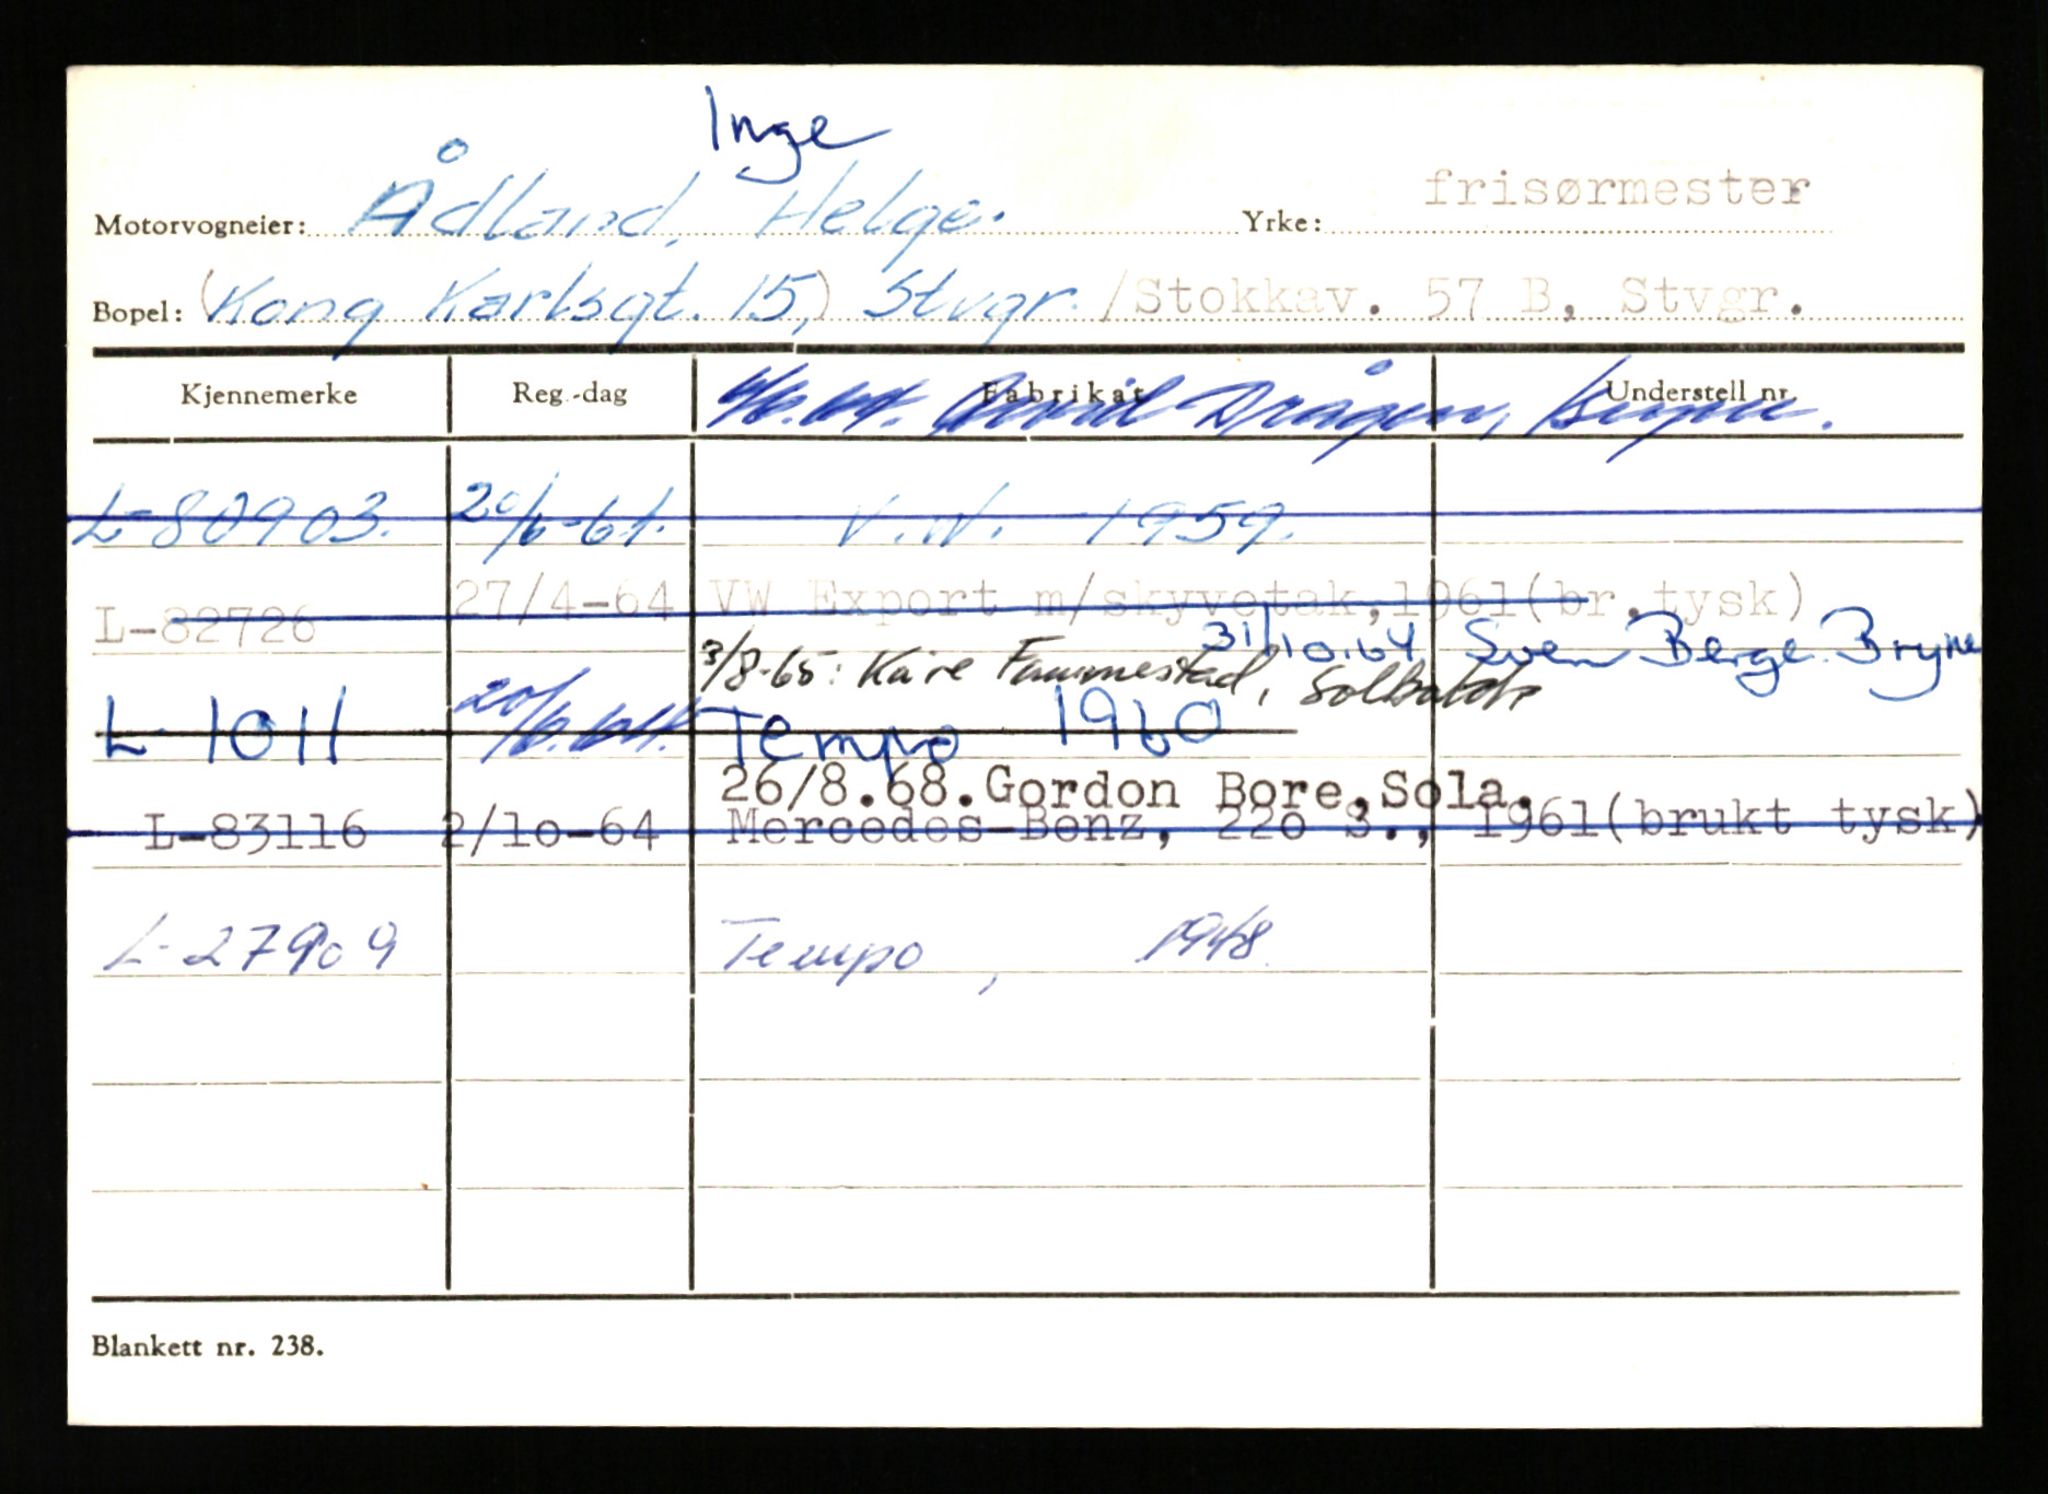 Inge
Motorvogneier: Ådland, Helge. Yrke: frisørmester
Bopel: (Kong Karlsgt. 15,) Stvgr. /Stokkav. 57 B, Stvgr.
Kjennemerke Reg.-dag Fabrikat Understell nr.
L-80903. 20/6-61. V.W. 1959.
L-82726 27/4-64 VW Export m/skyvetak,1961(br.tysk)
31/10.64 Sven Berge. Bryne
3/8-65: Kåre
L- 1011 20/6.64. Tempo 1960
26/8.68.Gordon Bore,Sola.
L-83116 2/10-64 Mercedes-Benz, 220 S., 1961(brukt tysk)
L-27909 Tempo, 1948.
Blankett nr. 238.